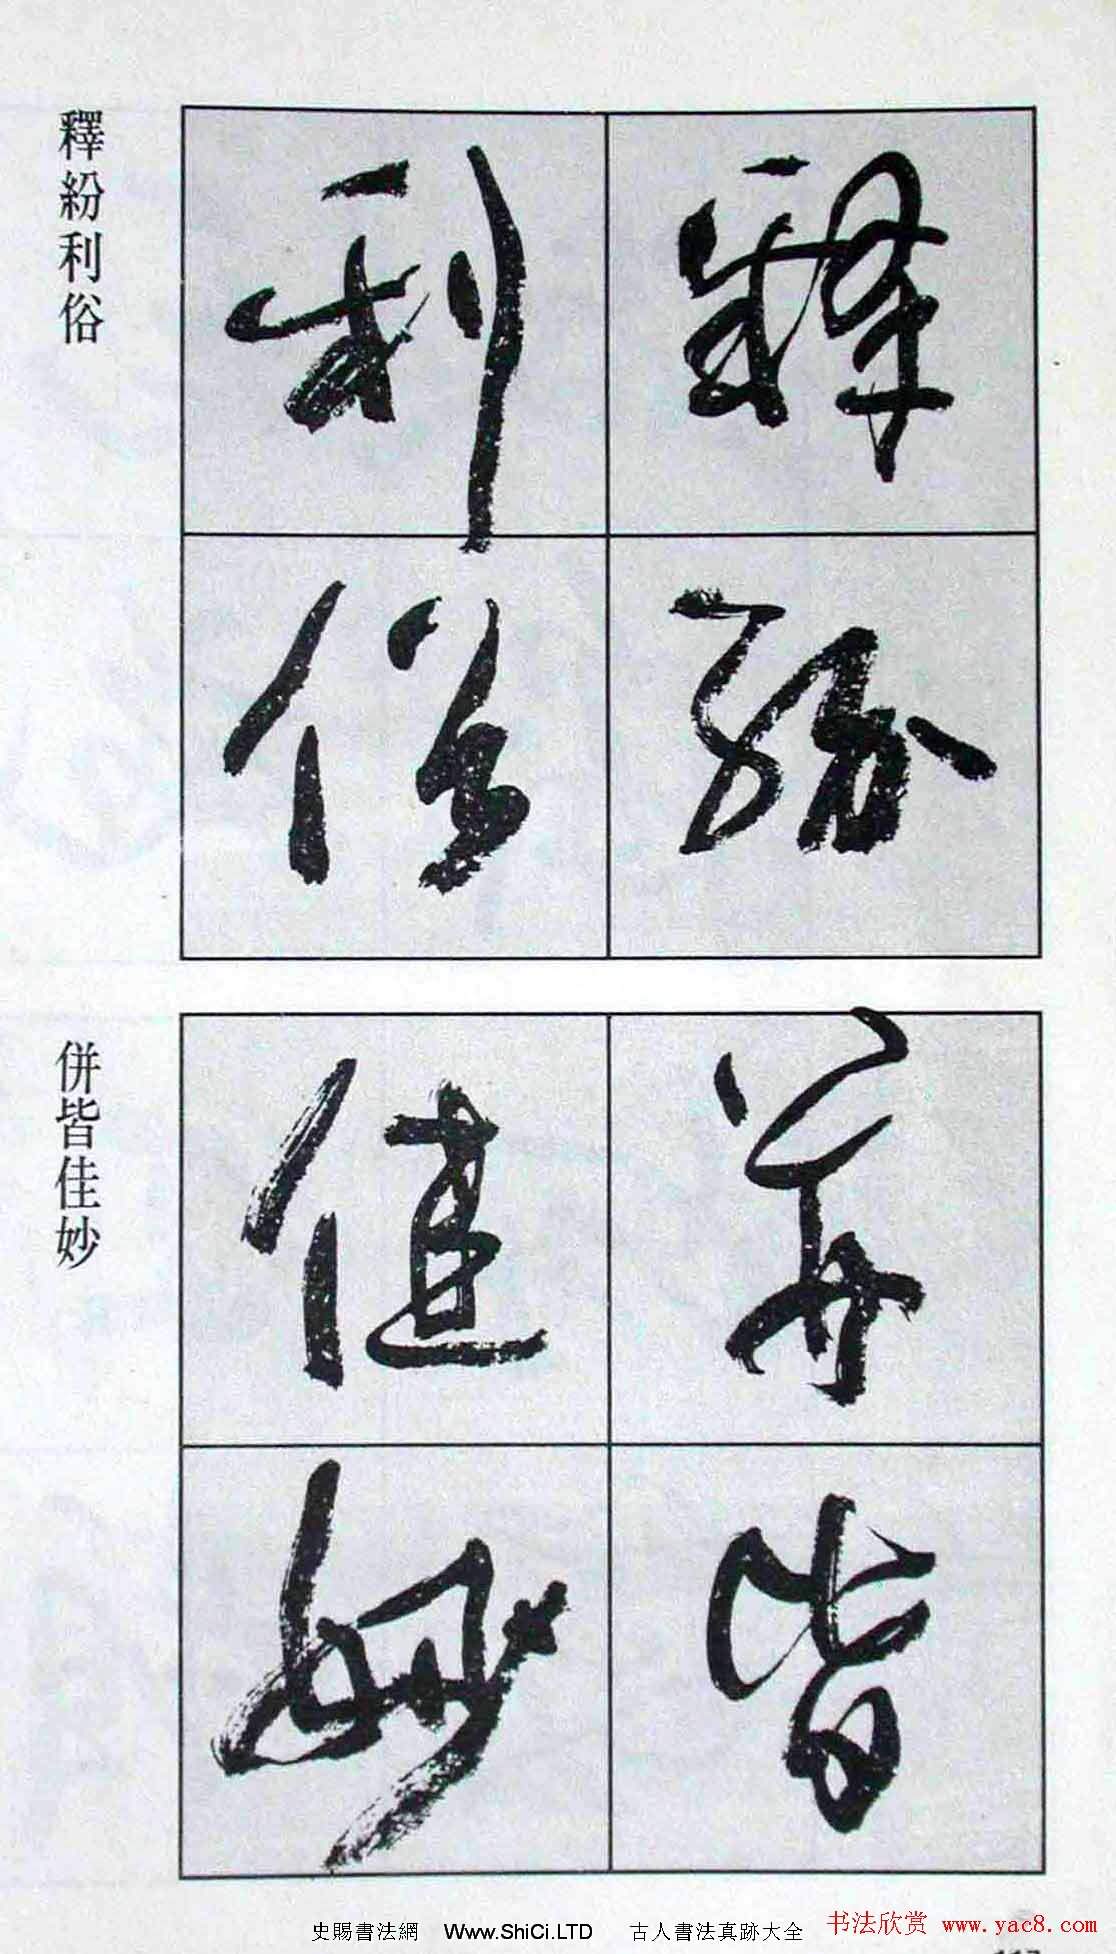 釋紛
利俗
釋紛利俗
並皆
佳妙
併皆佳妙
史賜書法網 Www.ShiCi.LTD 古人書法真跡大全
书法欣赏 www.yac8.com